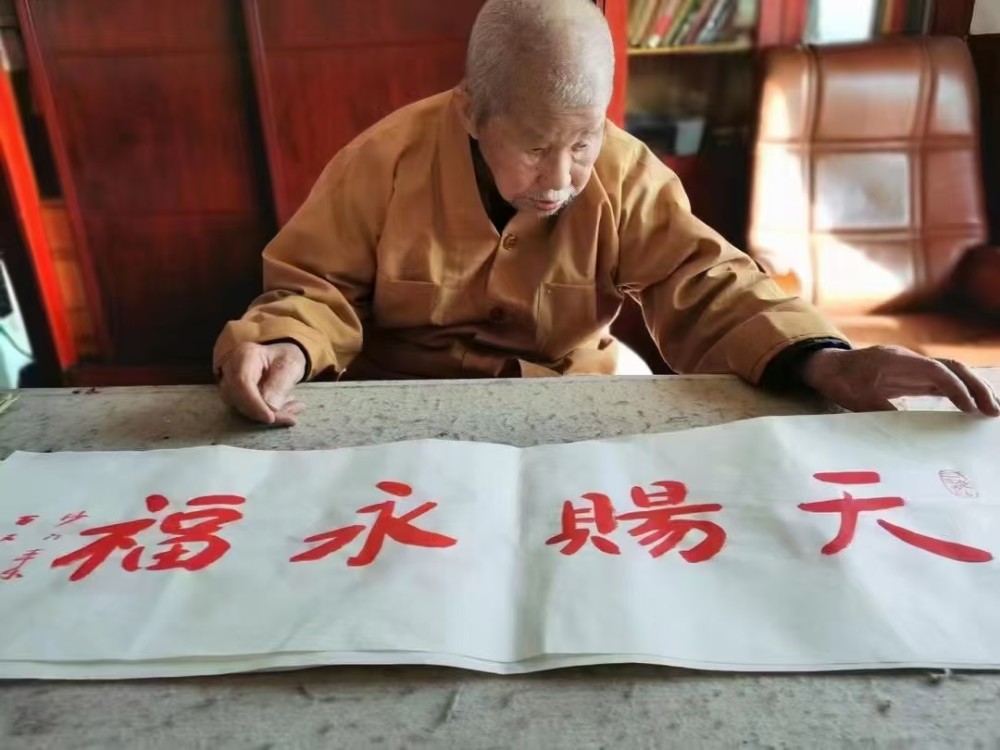 天賜永福